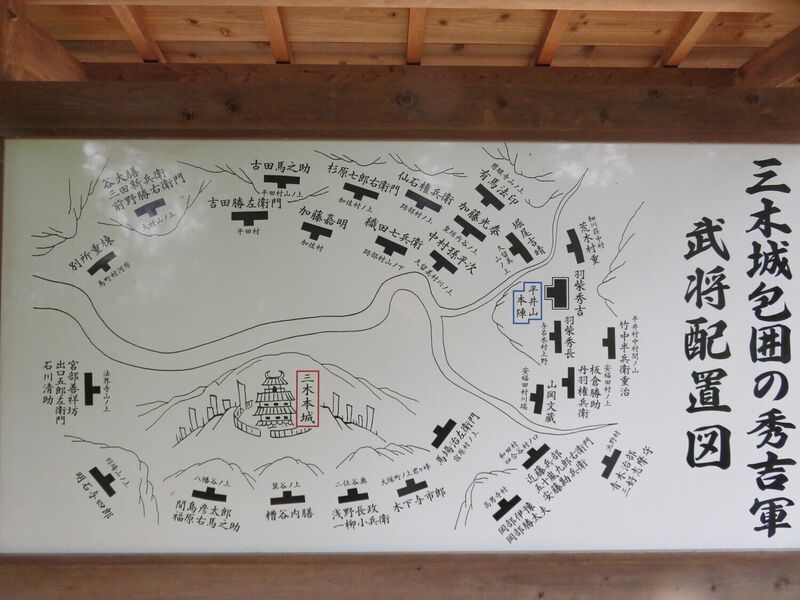 三木城包囲の秀吉軍
武将配置図
谷大膳
三田新兵衛
前野勝右衛門
大村山ノ上
別所重棟
鳥町村河原
古田馬之助
平田村山ノ上
吉田勝左衛門
平田村
杉原七郎右衛門
加佐村ノ上
加藤嘉明
加佐村
仙石権兵衛
跡部村ノ上
織田七兵衛
跡部村山ノ下
有馬法印
加藤光泰
中村孫平次
久留美村川ノ上
堀尾吉晴
久留美山ノ上
荒木村重
羽柴秀吉
平井山
本陣
羽柴秀長
平井村中村間ノ山
竹中半兵衛重治
安福田村ノ上
板倉勝助
丹羽権兵衛
安福田村川端
山岡文蔵
三木本城
宮部善祥坊
出口五郎左衛門
石川清助
法界寺山ノ上
明石与四郎
八幡谷ノ上
間島彦太郎
福原右馬之助
箕谷ノ上
糟谷内膳
二位谷奥
浅野長政
一柳小兵衛
大塚町ノ上君ヶ峰
木下与市郎
馬場治左衛門
宿原村ノ上
和田村
四合谷村ノ口
近藤兵部
五十嵐九郎右衛門
安藤勘兵衛
高男寺村
岡部伊豫
岡部勝太夫
池野村
青木治部
三好志摩守